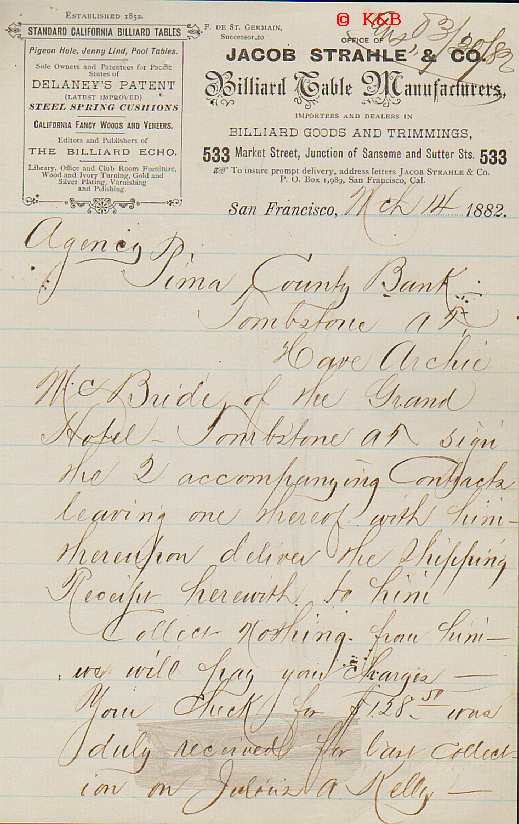 © K&B
Established 1852.
STANDARD CALIFORNIA BILLIARD TABLES
Pigeon Hole, Jenny Lind, Pool Tables.
Sole Owners and Patentees for Pacific
States of
DELANEY'S PATENT
(LATEST IMPROVED)
STEEL SPRING CUSHIONS
CALIFORNIA FANCY WOODS AND VENEERS.
Editors and Publishers of
THE BILLIARD ECHO.
Library, Office and Club Room Furniture,
Wood and Ivory Turning, Gold and
Silver Plating, Varnishing
and Polishing.
F. DE ST. GERMAIN,
Successor to
3/20/82
OFFICE OF
JACOB STRAHLE & CO.
Billiard Table Manufacturers,
IMPORTERS AND DEALERS IN
BILLIARD GOODS AND TRIMMINGS,
533 Market Street, Junction of Sansome and Sutter Sts. 533
To insure prompt delivery, address letters JACOB STRAHLE & CO.
P. O. Box 1,989, San Francisco, Cal.
San Francisco, Mch 14 1882.
Agency Pima County Bank
Tombstone AT
Have Archie
McBride of the Grand
Hotel - Tombstone AT sign
the 2 accompanying Contracts
leaving one thereof with him -
thereupon deliver the Shipping
Receipt herewith to him
Collect Nothing from him -
we will pay your Charges -
Your Check for $128.50 was
duly received for last Collect-
ion on A Kelly -